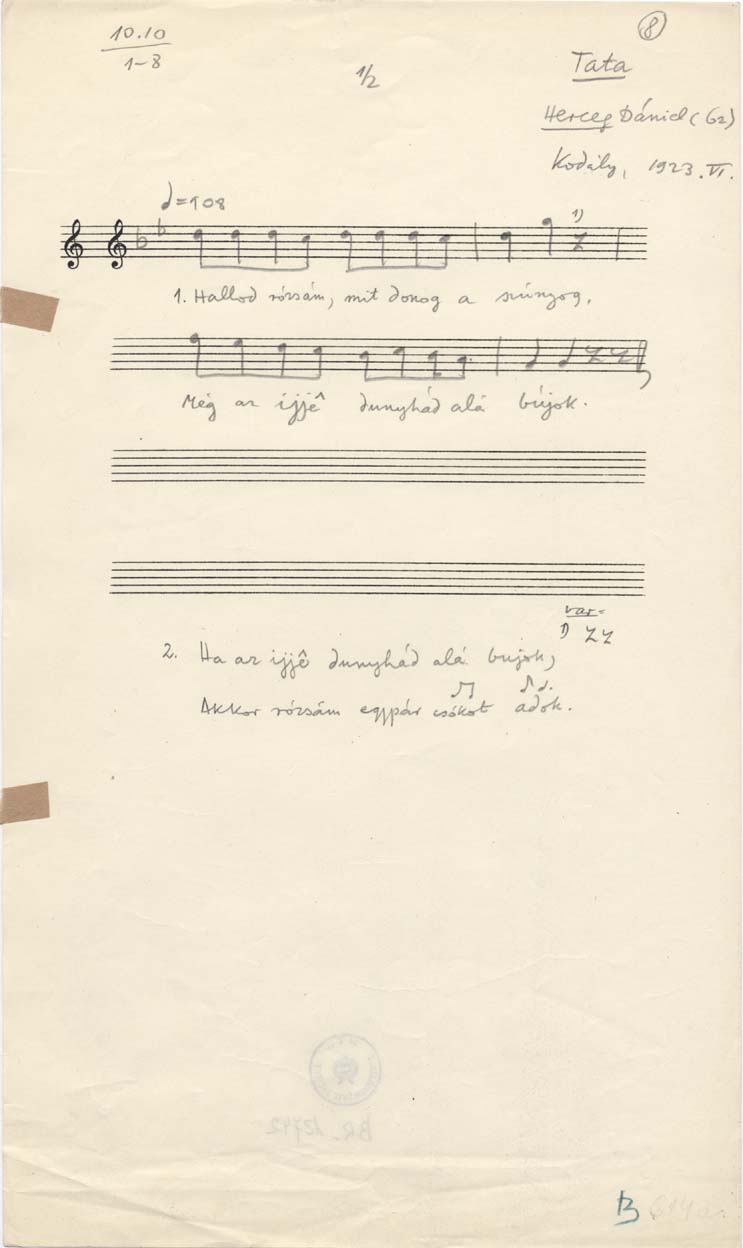 8
10.10
1-8
1/2
Tata
Herceg Dániel (62)
Kodály, 1923. VI.
=108
1)
1. Hallod rózsám, mit donog a szúnyog,
Még az ijjê dunyhád alá bújok.
var=
1)
2. Ha az ijjê dunyhád alá bujok,
Akkor rózsám egypár csókot adok.
BR_12742
B